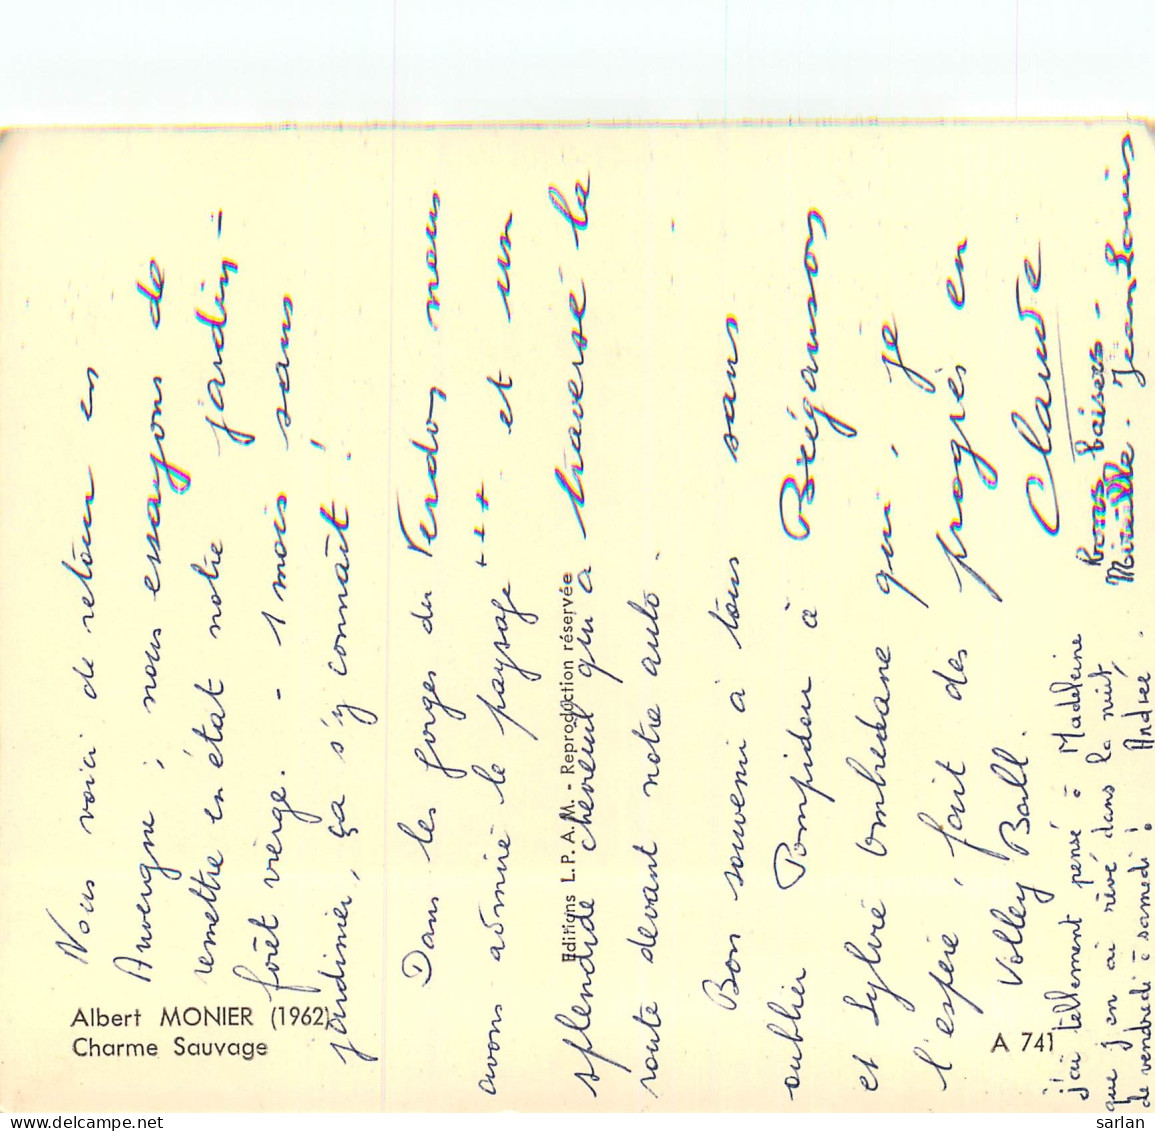 Nous voici de retour en
Auvergne ; nous essayons de
remettre en état notre jardin -
forêt vierge. - 1 mois sans
jardinier, ça s'y connaît !
Dans les gorges du Verdon nous
avons admiré le paysage +++ et un
splendide chevreuil qui a traversé la
route devant notre auto.
Bon souvenir à tous sans
oublier Pompidou à Brégançon
et Sylvie Ombredane qui, je
l'espère, fait des progrès en
Volley Ball.
Claude
Bons baisers -
Mireille. Jean Louis
j'ai tellement pensé à Madeleine
que j'en ai rêvé dans la nuit
de vendredi à samedi ! Andrée.
Albert MONIER (1962)
Charme Sauvage
Editions L.P.A.M. - Reproduction réservée
A 741
sarlan